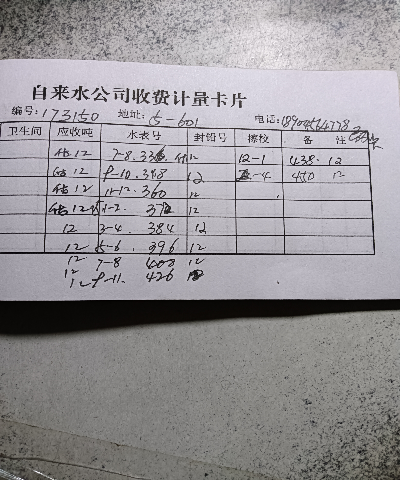 自来水公司收费计量卡片
编号:173150 地址:5-601 电话:
卫生间 应收吨 水表号 封铅号 擦校 备 注
估12 7-8.336 估12 12-1 438. 12
估12 9-10.348 12 2-4 450 12
估12 11-12.360 12
估12 1-2. 372 12
12 3-4. 384 12
12 5-6. 396 12
12 7-8 408 12
12 9-11. 420 12